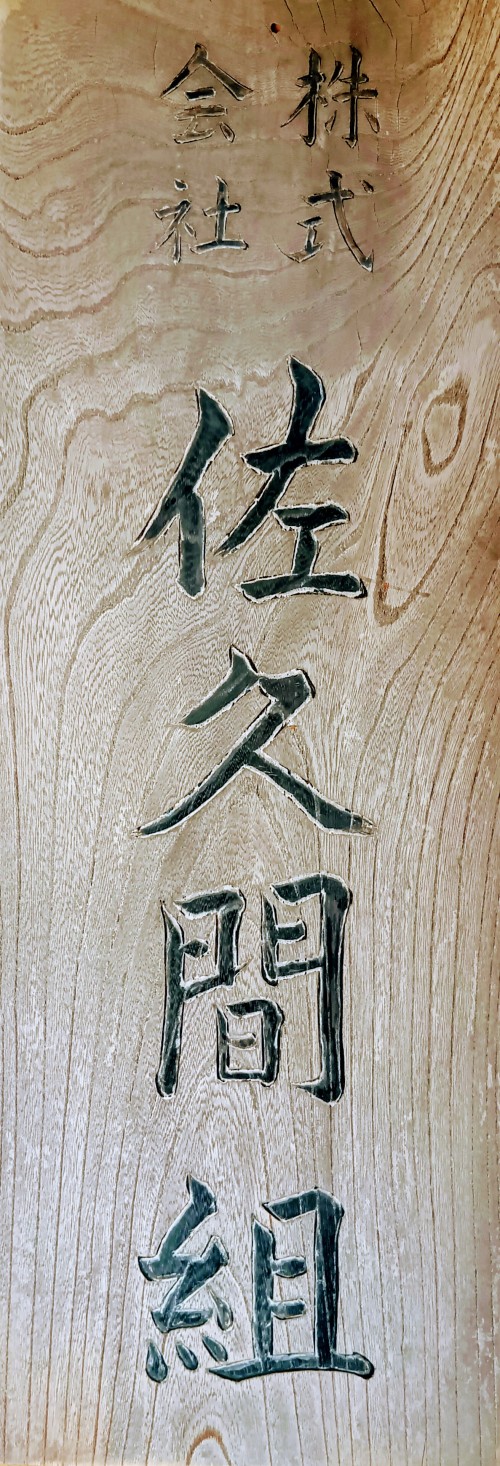 株式
会社
佐久間組